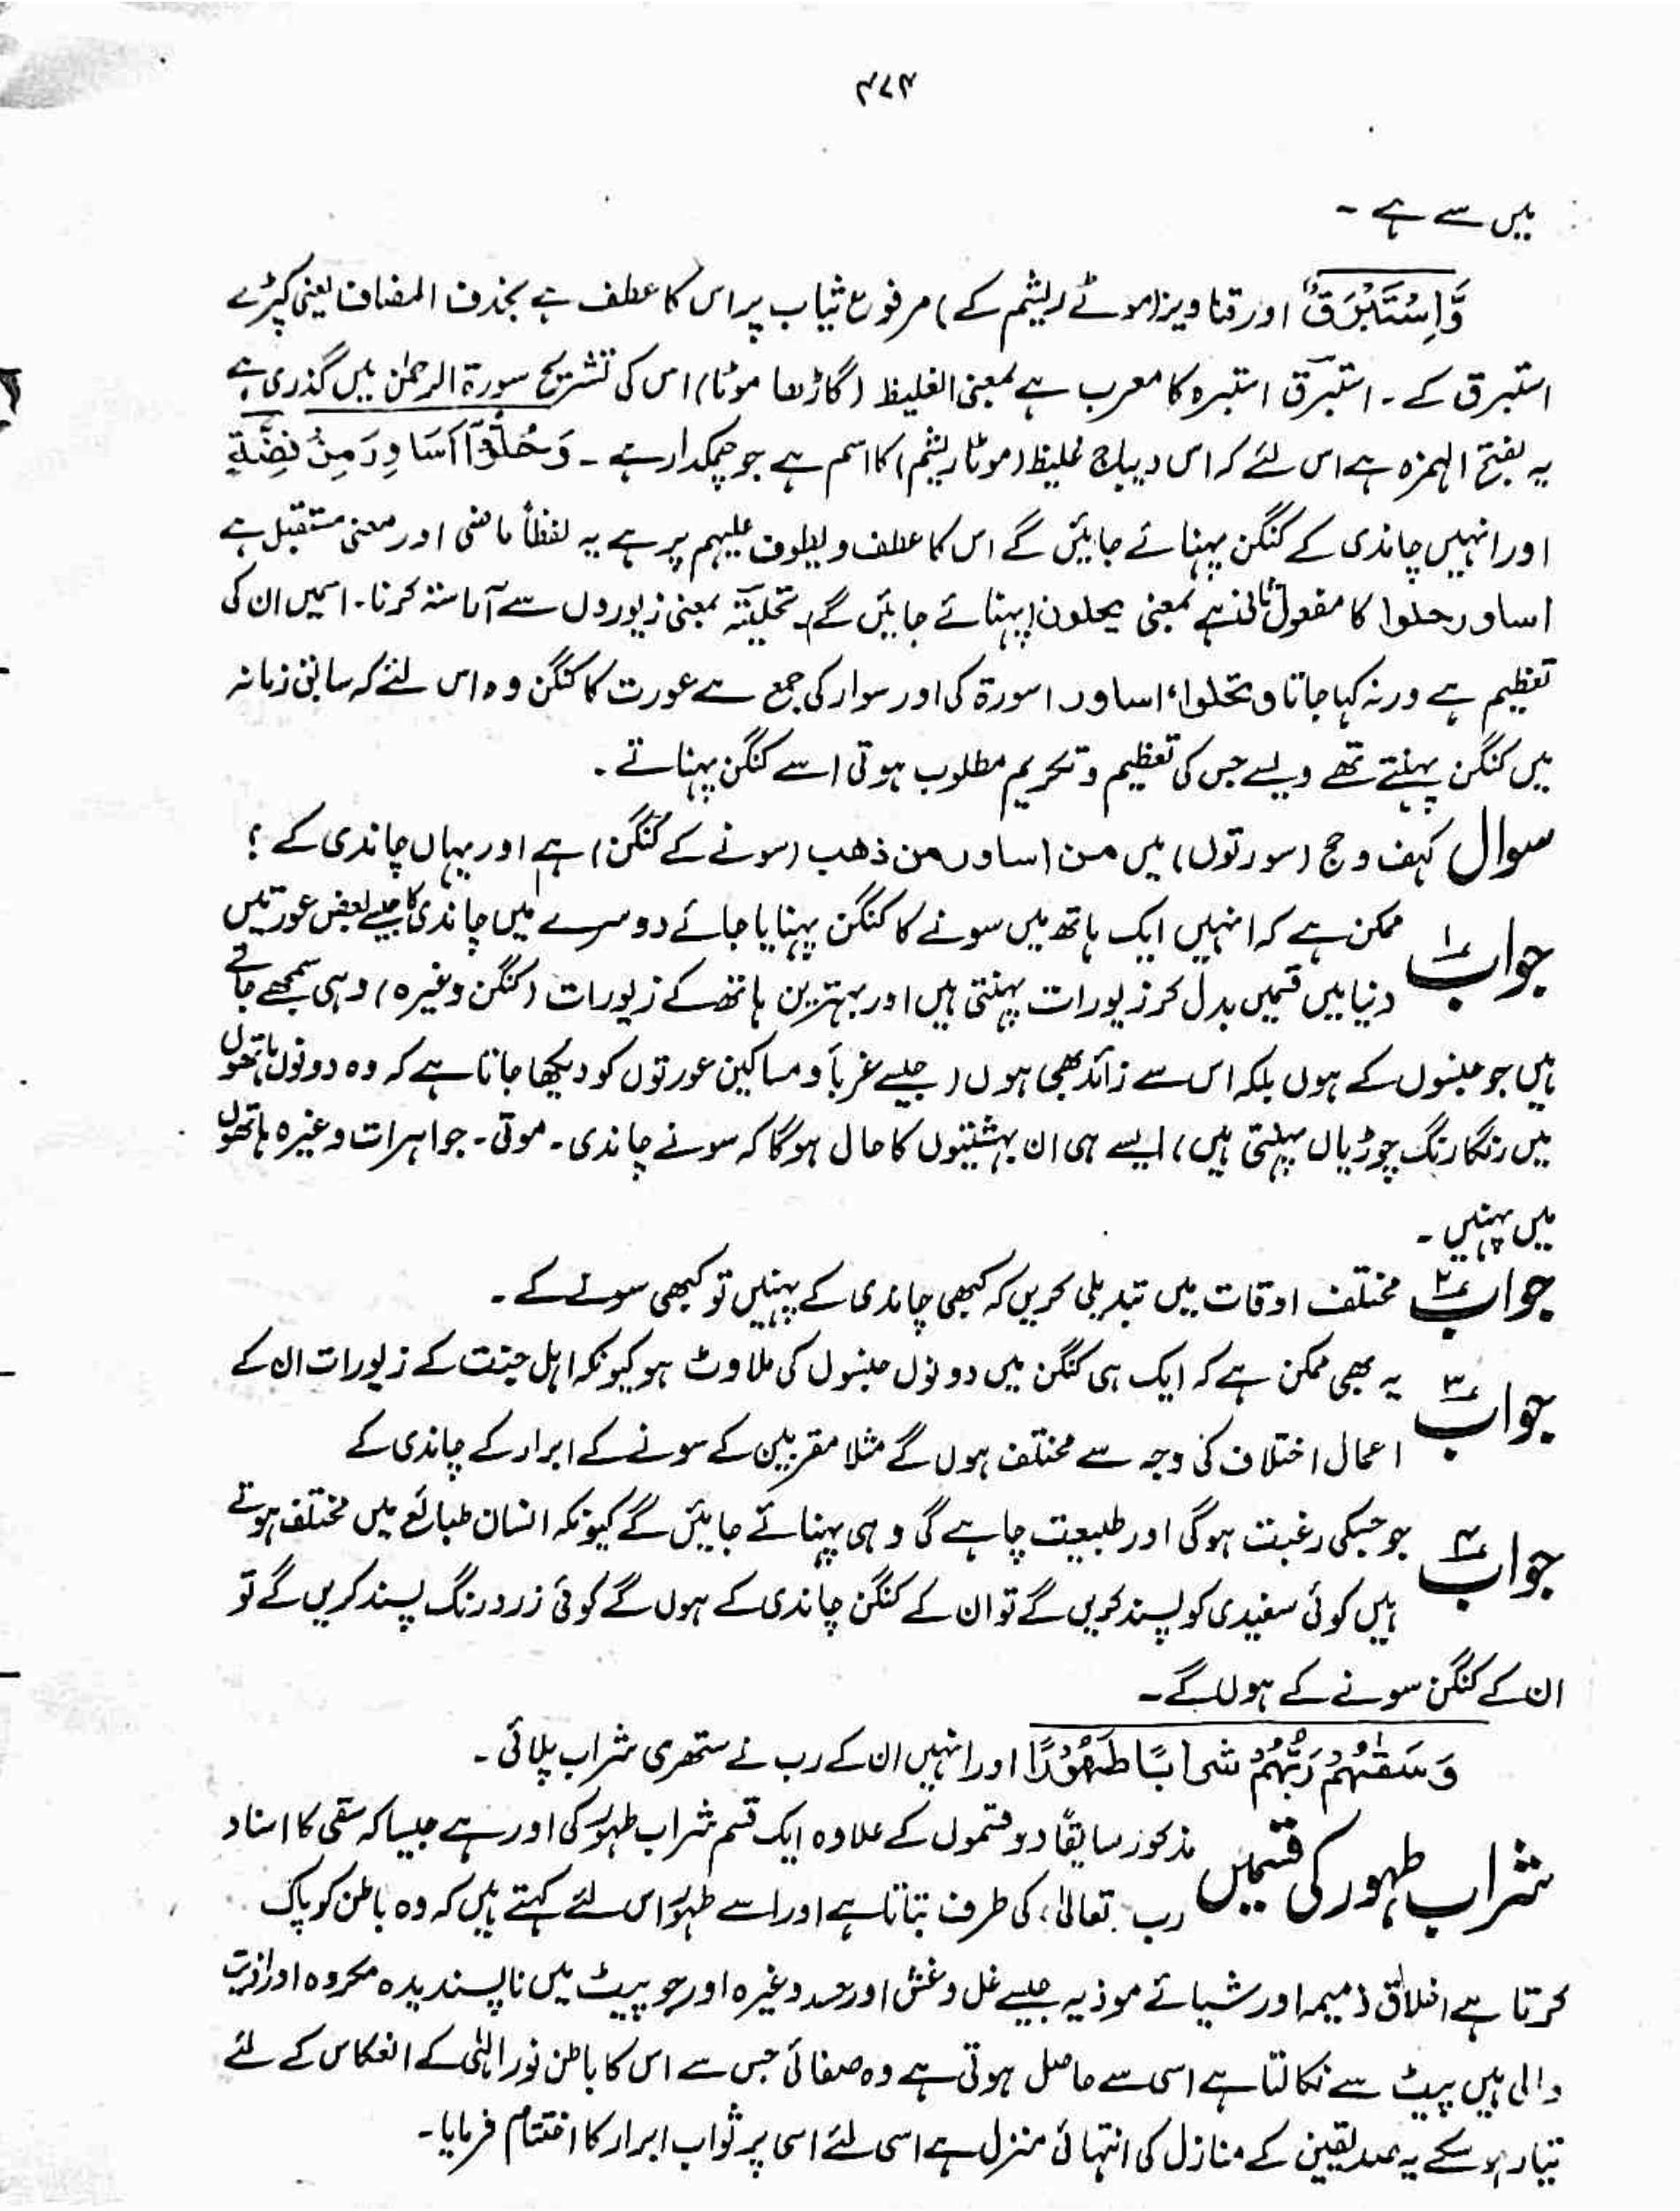 ۴۷۴
میں سے ہے ۔
وَّاِسْتَبْرَقٌ اور قناویز (موٹے ریشم کے) مرفوع ثیاب پر اس کا عطف ہے بحذف المضاف یعنی کپڑے
استبرق کے ۔ استبرق استبرہ کا معرب ہے بمعنی الغلیظ (گاڑھا موٹا) اس کی تشریح سورۃ الرحمٰن میں گذری ہے
یہ بفتح الہمزہ ہے اس لئے کہ اس دیباج غلیظ (موٹا ریشم) کا اسم ہے جو چمکدار ہے ۔ وَحُلُّوْۤا اَسَاوِرَ مِنْ فِضَّةٍ
اور انہیں چاندی کے کنگن پہنائے جائیں گے اس کا عطف ویطوف علیہم پر ہے یہ لفظاً ماضی اور معنی مستقبل ہے
اساور حلوا کا مفعول ثانی ہے بمعنی یحلون (پہنائے جائیں گے) ۔ تحلیتہ بمعنی زیوروں سے آراستہ کرنا ۔ اسمیں ان کی
تعظیم ہے ورنہ کہا جاتا و تحلوا، اساور اسورۃ کی اور سوار کی جمع ہے عورت کا کنگن وہ اس لئے کہ سابق زمانہ
میں کنگن پہنتے تھے ویسے جس کی تعظیم و تکریم مطلوب ہوتی اسے کنگن پہناتے ۔
سوال کہف و حج (سورتوں) میں من اساور من ذھب (سونے کے کنگن) ہے اور یہاں چاندی کے ؟
جواب ۱ ممکن ہے کہ انہیں ایک ہاتھ میں سونے کا کنگن پہنایا جائے دوسرے میں چاندی کا جیسے بعض عورتیں
دنیا میں قسمیں بدل کر زیورات پہنتی ہیں اور بہترین ہاتھ کے زیورات (کنگن وغیرہ) وہی سمجھے جاتے
ہیں جو جنسوں کے ہوں بلکہ اس سے زائد بھی ہوں (جیسے غرباً و مساکین عورتوں کو دیکھا جاتا ہے کہ وہ دونوں ہاتھوں
میں رنگا رنگ چوڑیاں پہنتی ہیں) ایسے ہی ان بہشتیوں کا حال ہوگا کہ سونے چاندی ۔ موتی ۔ جواہرات وغیرہ ہاتھوں
میں پہنیں ۔
جواب ۲ مختلف اوقات میں تبدیلی کریں کہ کبھی چاندی کے پہنیں تو کبھی سونے کے ۔
جواب ۳ یہ بھی ممکن ہے کہ ایک ہی کنگن میں دونوں جنسوں کی ملاوٹ ہو کیونکہ اہل جنت کے زیورات ان کے
اعمال اختلاف کی وجہ سے مختلف ہوں گے مثلا مقربین کے سونے کے ابرار کے چاندی کے
جواب ۴ جو جسکی رغبت ہوگی اور طبیعت چاہے گی وہی پہنائے جائیں گے کیونکہ انسان طبائع میں مختلف ہوتے
ہیں کوئی سفیدی کو پسند کریں گے تو ان کے کنگن چاندی کے ہوں گے کوئی زرد رنگ پسند کریں گے تو
ان کے کنگن سونے کے ہوں گے ۔
وَسَقٰىهُمْ رَبُّهُمْ شَرَابًا طَهُوْرًا اور انہیں ان کے رب نے ستھری شراب پلائی ۔
شراب طہور کی قسمیں مذکور سابقاً دو قسموں کے علاوہ ایک قسم شراب طہور کی اور ہے جیسا کہ سقی کا اسناد
رب تعالیٰ، کی طرف بتاتا ہے اور اسے طہور اس لئے کہتے ہیں کہ وہ باطن کو پاک
کرتا ہے اخلاق ذمیمہ اور شیائے موذیہ جیسے غل و غش اور حسد وغیرہ اور جو پیٹ میں ناپسندیدہ مکروہ اور اذیت
والی ہیں پیٹ سے نکالتا ہے اسی سے حاصل ہوتی ہے وہ صفائی جس سے اس کا باطن نور الٰہی کے انعکاس کے لئے
تیار ہو سکے یہ صدیقین کے منازل کی انتہائی منزل ہے اسی لئے اسی پر ثواب ابرار کا اختتام فرمایا ۔